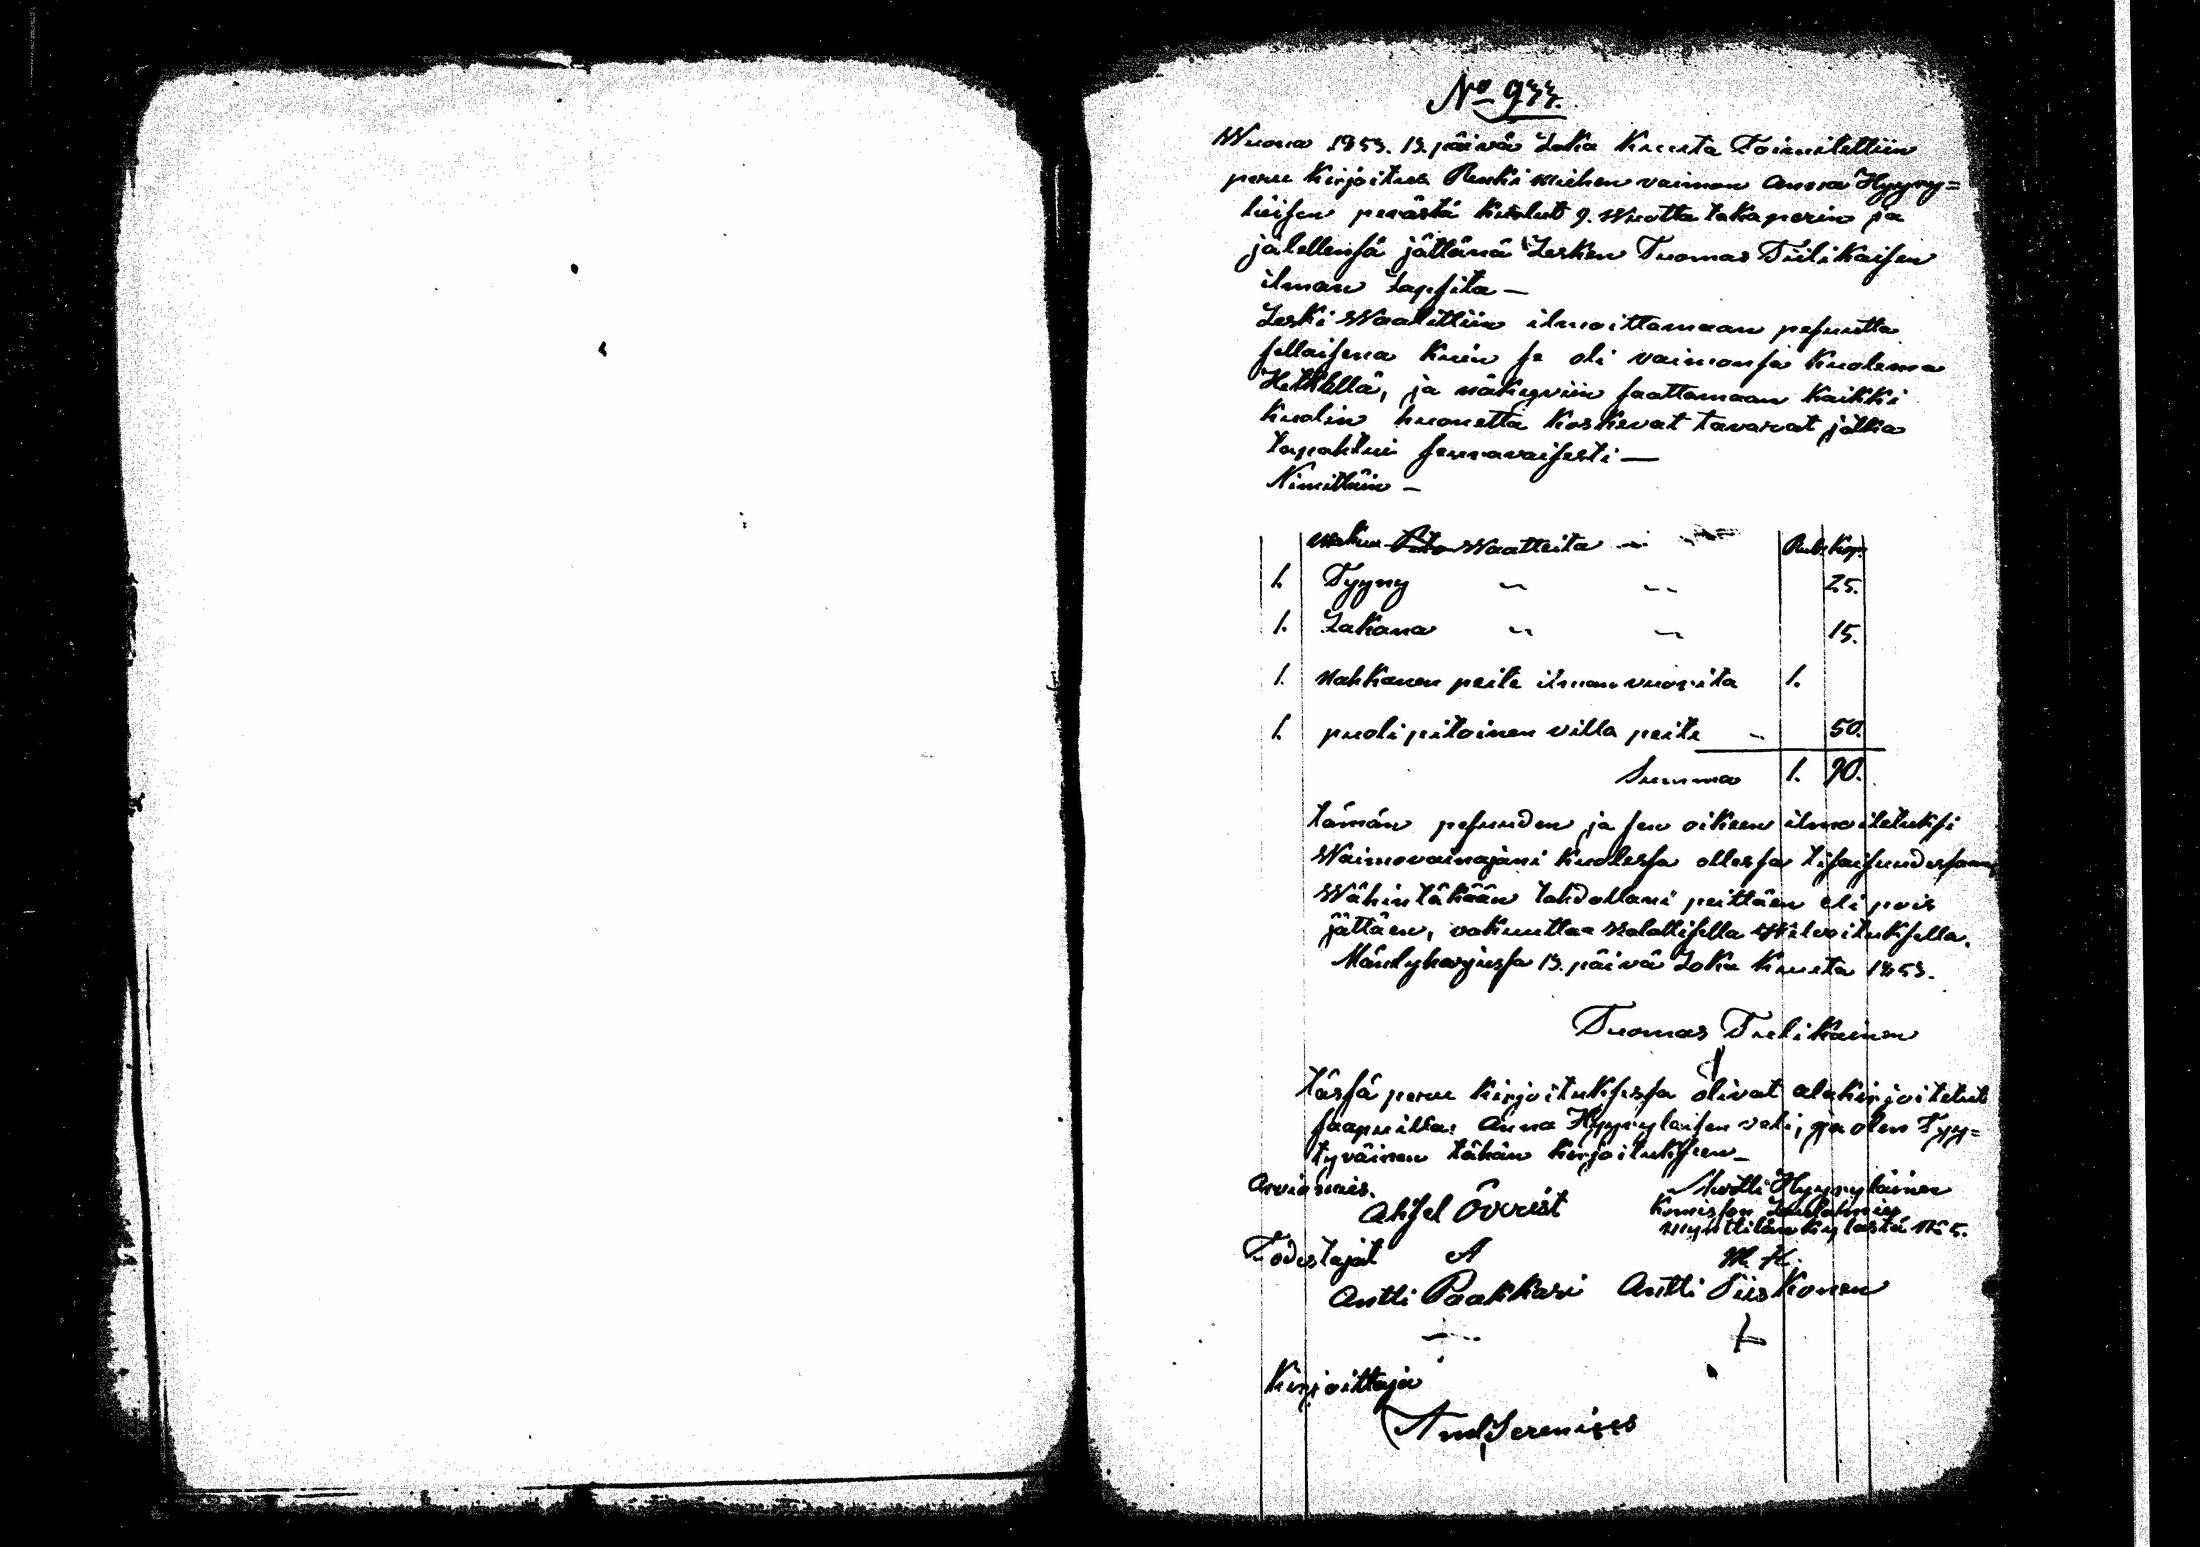 No 933.
Wuona 1853. 13. päivä Loka Kuusta Toimitettiin
peru Kirjoitus Renki miehen vaimon Anna Hyyry=
läisen perästä kuolut 9. Wuotta takaperin ja
jälellensä jättänä Lesken Tuomas Tiilikaisen
ilman Lapsita —
Leski Waalittiin ilmoittamaan pesuutta
sellaisena Kuin se oli vaimonsa Kuolema
Hetkellä, ja näkyviin saattamaan Kaikki
Kuolin huonetta Koskevat tavarat jotka
tapahtui seuraavaisesti —
Nimittäin —
Makuu Waatteita Rub. Kop.
1. Tyyny 25.
1. Lakana 15.
1. Nahkanen peite ilman vuorita 1.
1. puoli pitoinen villa peite 50.
Summa 1. 90.
tämän pesuuden ja sen oikeen ilmoitetuksi
Waimovainajani Kuolessa ollessa
Wähintäkään tahdollani peittäen eli pois
jättäen, vakuuttaa Walallisella Welvoituksella.
Mändyharjussa 13. päivä Loka Kuuta 1853.
Tuomas Tiilikainen
tässä peru Kirjoituksessa olivat alakirjoitetut
saapuilla: Anna Hyyryläisen veli, ja olen Tyy=
tyväinen tähän Kirjoitukseen —
Arviomies. Matti Hyyryläinen
Ahxel Öövrist Lautamies
Mynttilän Kylästä No 5.
Todistajat A M. H.
Antti Paakkari Antti Piiskonen
Kirjoittaja
And. Serenius